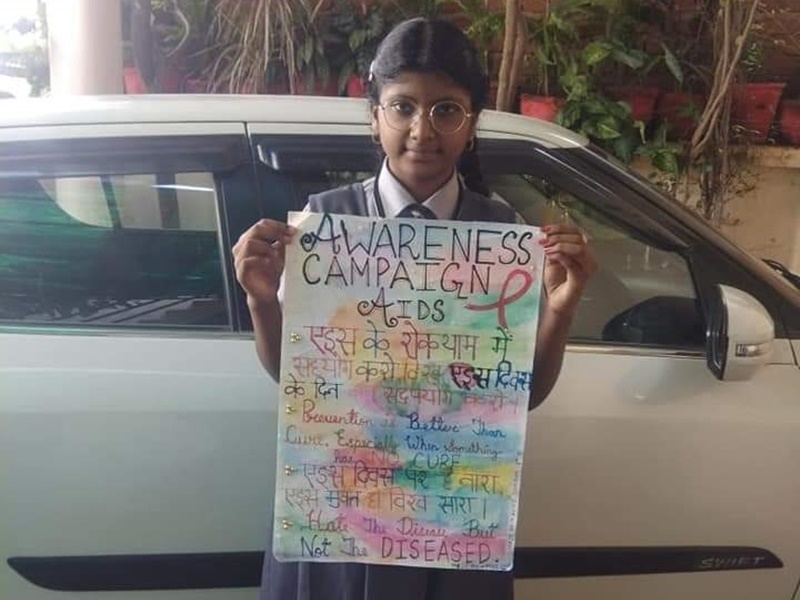 AWARENESS
CAMPAIGN
AIDS
एड्स के रोकथाम में
सहयोग करो विश्व एड्स दिवस
के दिन सदुपयोग करो
Prevention is Better Than
Cure, Especially When Something
has NO CURE
एड्स दिवस पर है नारा,
एड्स मुक्त हो विश्व सारा।
Hate The Disease But
Not The DISEASED.
SWIFT